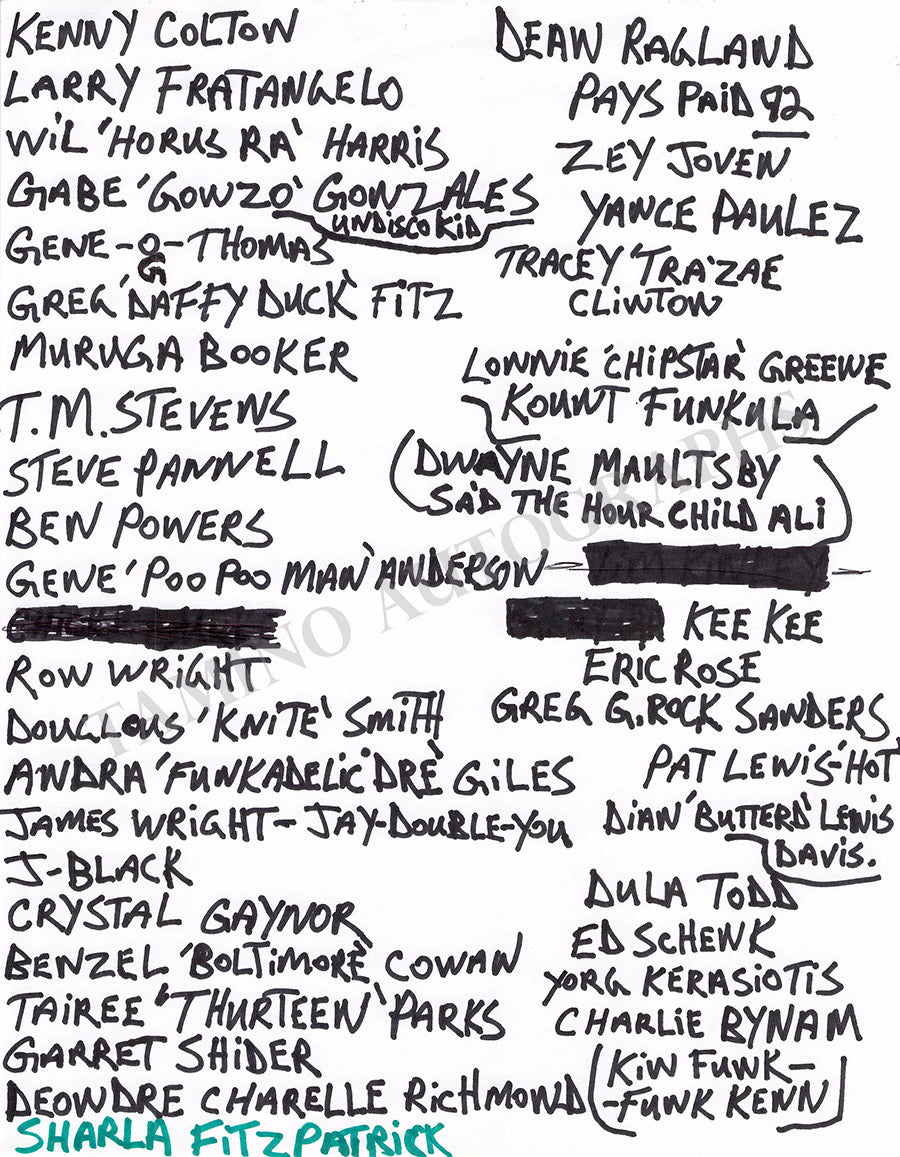 KENNY COLTON
LARRY FRATANGELO
WiL 'HORUS RA' HARRIS
GABE 'GONZO' GONZALES
UNDISCO KiD
GENE-O-THOMAS
G
GREG 'DAFFY DUCK' FiTZ
MURUGA BOOKER
T.M. STEVENS
STEVE PANNELL
BEN POWERS
GENE 'POO POO MAN' ANDERSON
RON WRiGHT
DOUGLOUS 'KNiTE' SMiTH
ANDRA 'FUNKADELiC DRE' GiLES
JAMES WRiGHT- JAY-DOUBLE-YOU
J-BLACK
CRYSTAL GAYNOR
BENZEL 'BOLTiMORE' COWAN
TAiREE 'THURTEEN' PARKS
GARRET SHiDER
DEONDRE CHARELLE RicHMOND
SHARLA FiTZPATRiCK
DEAN RAGLAND
PAYS PAiD 92
ZEY JOVEN
YANCE PAULEZ
TRACEY 'TRA'ZAE
CLiNTON
LONNiE 'CHiPSTAR' GREENE
KOUNT FUNKULA
DWAYNE MAULTSBY
SA'D THE HOUR CHiLD ALi
KEE KEE
ERiC ROSE
GREG G.ROCK SANDERS
PAT LEWiS-'HOT
DiAN 'BUTTERD' LEWiS
DAViS.
DULA TODD
ED SCHENK
YORG KERASiOTiS
CHARLiE BYNAM
(KiN FUNK-
-FUNK KENN)
TAMINO AUTOGRAPHS